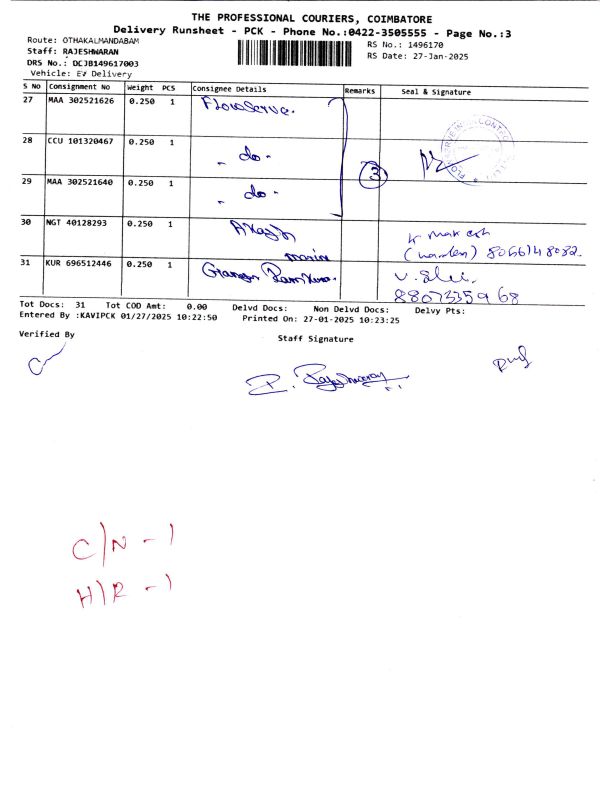 THE PROFESSIONAL COURIERS, COIMBATORE
Delivery Runsheet - PCK - Phone No.:0422-3505555 - Page No.:3
Route: OTHAKALMANDABAM
RS No.: 1496170
Staff: RAJESHWARAN
RS Date: 27-Jan-2025
DRS No.: DCJB149617003
Vehicle: EV Delivery
S No Consignment No Weight PCS Consignee Details Remarks Seal & Signature
27 MAA 302521626 0.250 1 Flowserve.
28 CCU 101320467 0.250 1 - do -
3
29 MAA 302521640 0.250 1 - do -
30 NGT 40128293 0.250 1
31 KUR 696512446 0.250 1
8807335968
Tot Docs: 31 Tot COD Amt: 0.00 Delvd Docs: Non Delvd Docs: Delvy Pts:
Entered By :KAVIPCK 01/27/2025 10:22:50 Printed On: 27-01-2025 10:23:25
Verified By
Staff Signature
C/N - 1
H/R - 1